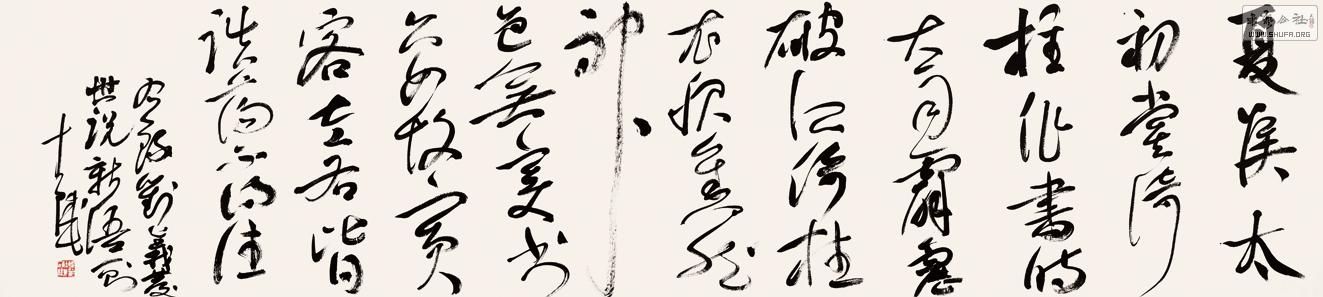 夏侯太
初嘗倚
柱作書时
大雨霹靂
破所倚柱
衣服焦然
神
色無变书
亦如故賓
客左右皆
跌蕩不得住
右錄劉義慶
世說新語
WWW.SHUFA.ORG